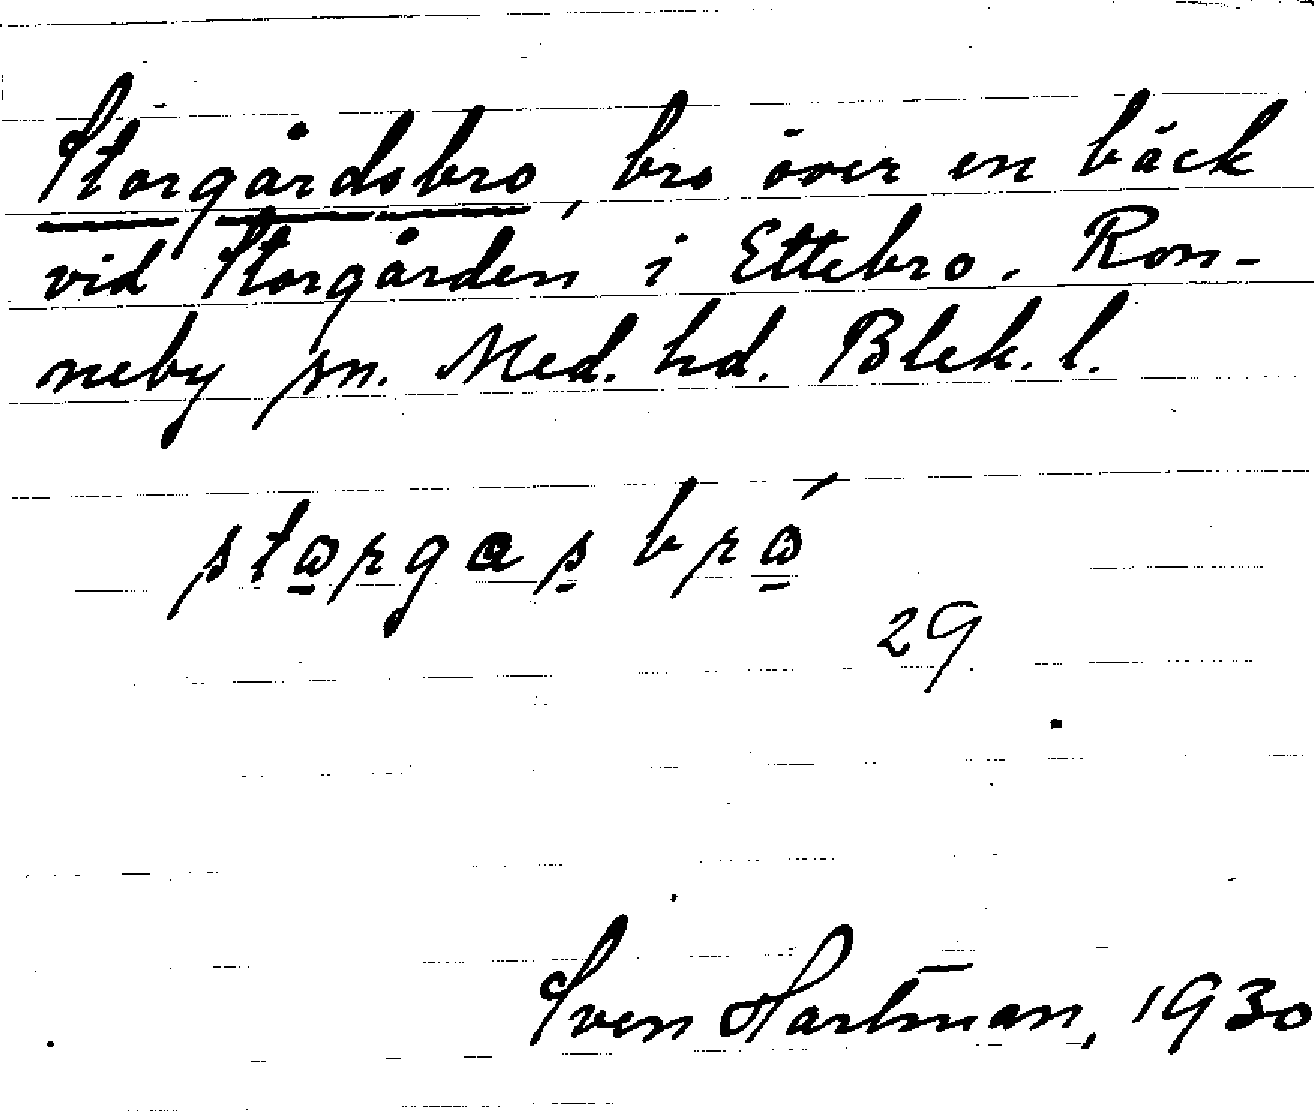 Storgårdsbro, bro över en bäck
vid Storgården i Ettebro. Ron-
neby sn. Med. hd. Blek. l.
storgas bró
29
Sven Hartman, 1930